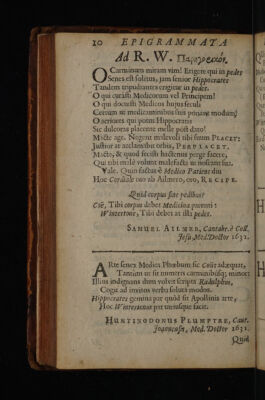 10 EPIGRAMMATA
Ad R. W. Παρηγορικόν.
O Carminum miram vim! Erigere qui in pedes
Senes est solitus, jam senior Hippocrates
Tandem tripudiantes erigitur in pedes.
O qui curasti Medicorum vel Principem!
O qui docuisti Medicos hujus seculi
Certum in medicantibus
O aeriores qui potus Hippocratis
Sic dulcoras placente melle post dato!
Macte age. Negent malevoli tibi suum PLACET:
Justior at acclamabit orbis, PERPLACET.
Macto, & quod fecisti hactenus perge facere,
Qui tibi malè volunt malefacta ut noscant sua.
Vale. Quin factus è Medico Patiens diu
Hoc Cordiale tuo ab Ailmero, RECIPE.
Quid corpus sine pedibus?
Coë, Tibi corpus debet Medicina poematis:
Wintertone, Tibi debet at ista pedes.
SAMUEL AILMER, Cantabr. è Coll.
Jesu, Med. Doctor 1631.
ARte senex Medica Phœbum sic Coüs adæquat,
Tantum ut sit numeris carminibusque minor:
Illius indignans dum volvit scripta Radulphus,
Cogit ad invitos verba soluta modos.
Hippocrates gemina par quòd sit Apollinis arte,
Hoc Wintertonus par utriusque facit.
HUNTINGDONUS PLUMPTRE, Cant.
Med. Doctor 1631.
Quid